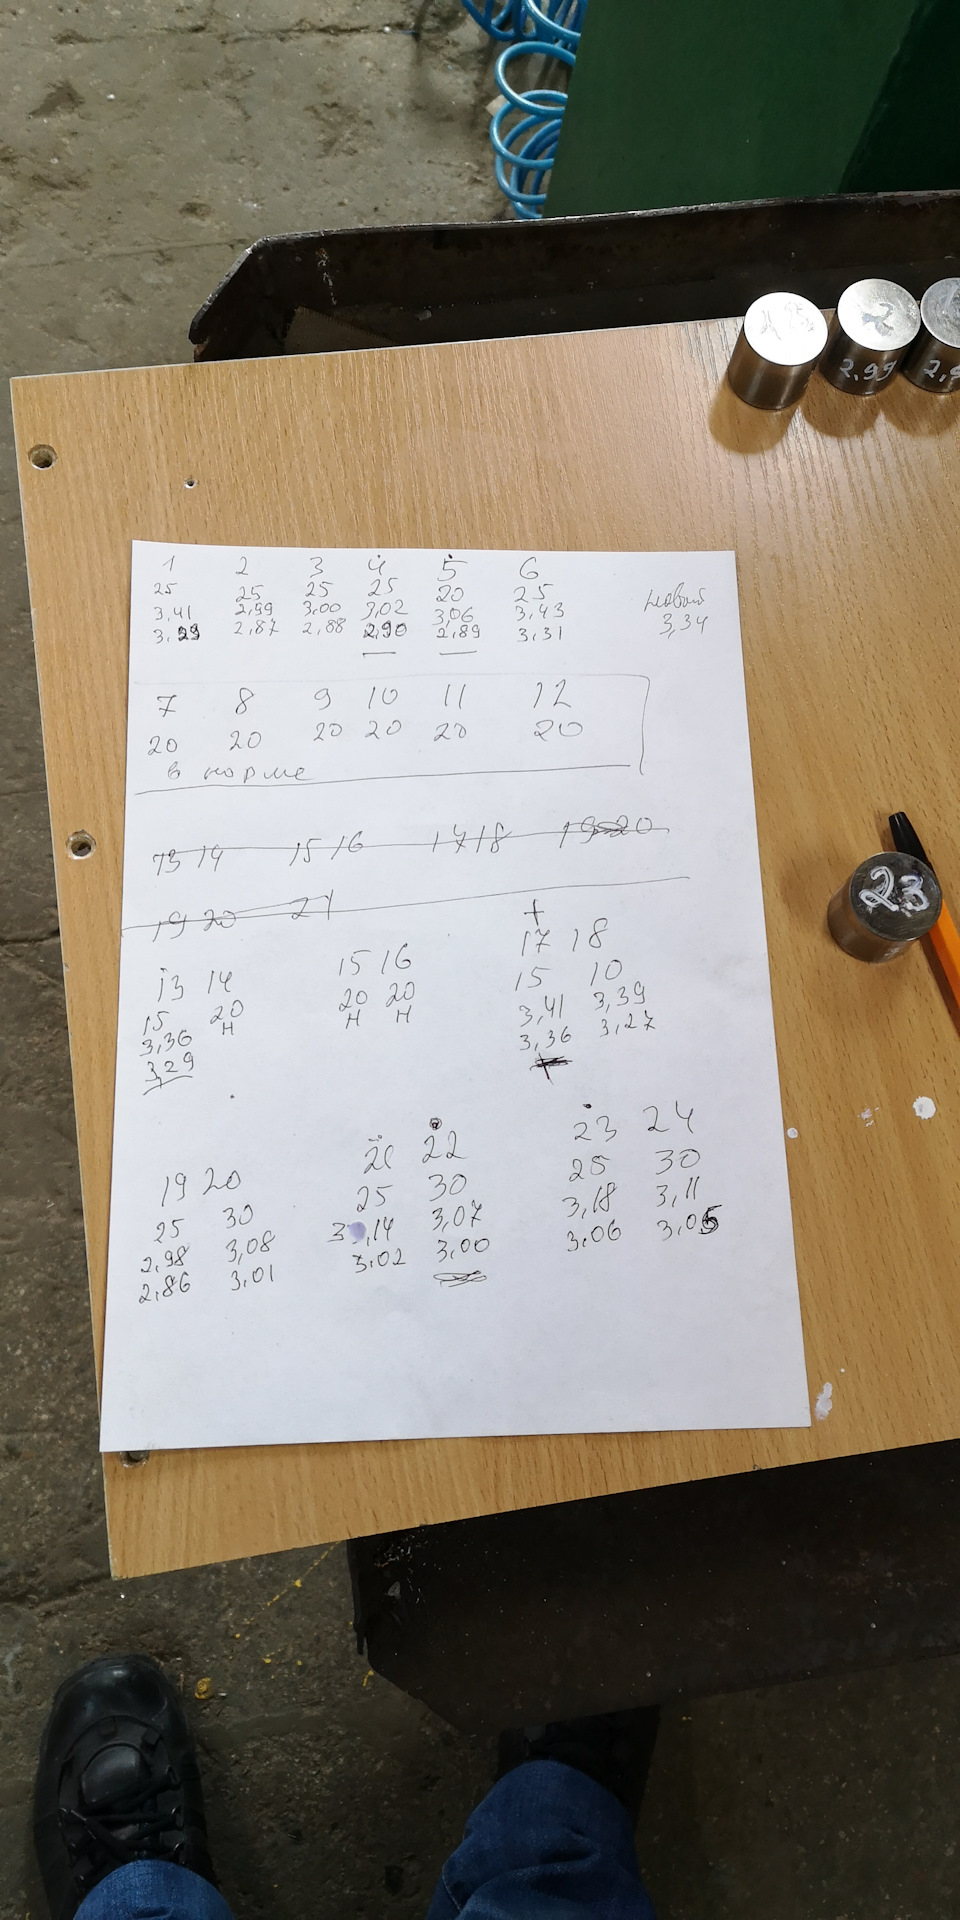 2,99
1 2 3 4 5 6
25 25 25 25 20 25
3,41 2,99 3,00 3,02 3,06 3,43
3,29 2,87 2,88 2,90 2,89 3,31
новый
3,34
7 8 9 10 11 12
20 20 20 20 20 20
в норме
13 14 15 16 17 18 19 20
19 20 21
13 14
15 20
3,36 Н
3,29
15 16
20 20
Н Н
+
17 18
15 10
3,41 3,39
3,36 3,27
19 20
25 30
2,98 3,08
2,86 3,01
21 22
25 30
3,14 3,07
3,02 3,00
23 24
25 30
3,18 3,11
3,06 3,05
23